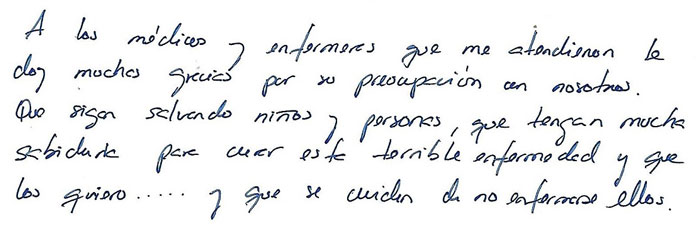 A los médicos y enfermeras que me atendieron le
doy muchas gracias por su preocupación con nosotros.
Que sigan salvando niños y personas, que tengan mucha
sabiduria para curar esta terrible enfermedad y que
los quiero..... y que se cuiden de no enfermarse ellos.